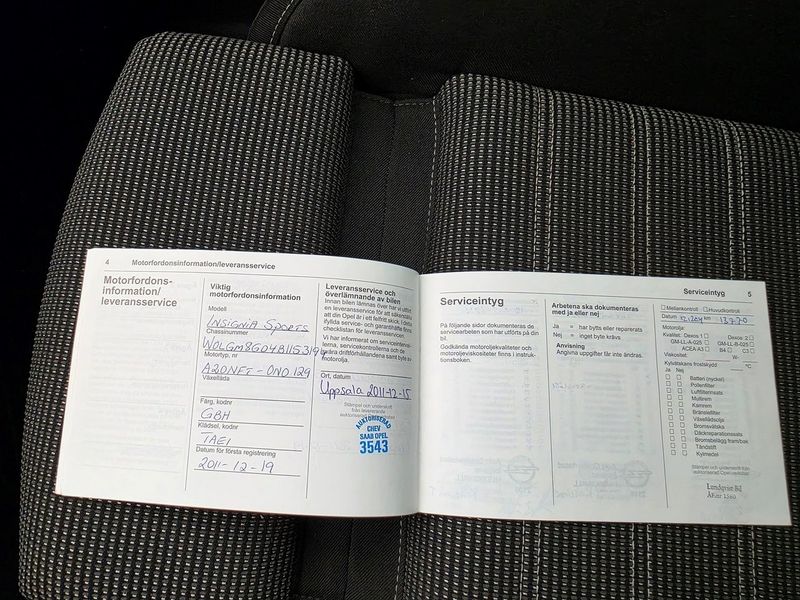 4 Motorfordonsinformation/leveransservice
Motorfordons-
information/
leveransservice
Viktig
motorfordonsinformation
Modell
INSIGNIA SPORTS
Chassinummer
W0LGM8GD4B1153194
Motortyp, nr
A20NFT-0N0 129
Växellåda
Färg, kodnr
GBH
Klädsel, kodnr
TAEI
Datum för första registrering
2011-12-19
Leveransservice och
överlämnande av bilen
Innan bilen lämnas över har vi utfört
en leveransservice för att säkerställa
att din Opel är i ett felfritt skick. I detta
ifyllda service- och garantihäfte finns
checklistan för leveransservicen.
Vi har informerat om serviceintervallerna,
servicekontrollerna och de
svåra driftförhållandena samt bytet av
motorolja.
Ort, datum
Uppsala 2011-12-15
Stämpel och underskrift
från levererande
AUKTORISERAD
CHEV
SAAB OPEL
3543
Serviceintyg 5
Serviceintyg
På följande sidor dokumenteras de
servicearbeten som har utförts på din
bil.
Godkända motoroljekvaliteter och
motoroljeviskositeter finns i instruk-
tionsboken.
Arbetena ska dokumenteras
med ja eller nej
Ja = har bytts eller reparerats
Nej = inget byte krävs
Anvisning
Angivna uppgifter får inte ändras.
Mellankontroll Huvudkontroll
Datum km
Motorolja:
Kvalitet: Dexos 1 Dexos 2
GM-LL-A-025 GM-LL-B-025
ACEA A3 B4 C3
Viskositet: W-
Kylvätskans frostskydd °C
Ja Nej
Batteri (nyckel)
Pollenfilter
Luftfilterinsats
Multirem
Kamrem
Bränslefilter
Växellådsolja
Bromsvätska
Däckreparationssats
Bromsbelägg fram/bak
Tändstift
Kylmedel
Stämpel och underskrift från
auktoriserad Opel-verkstad
Lundqvist Bil